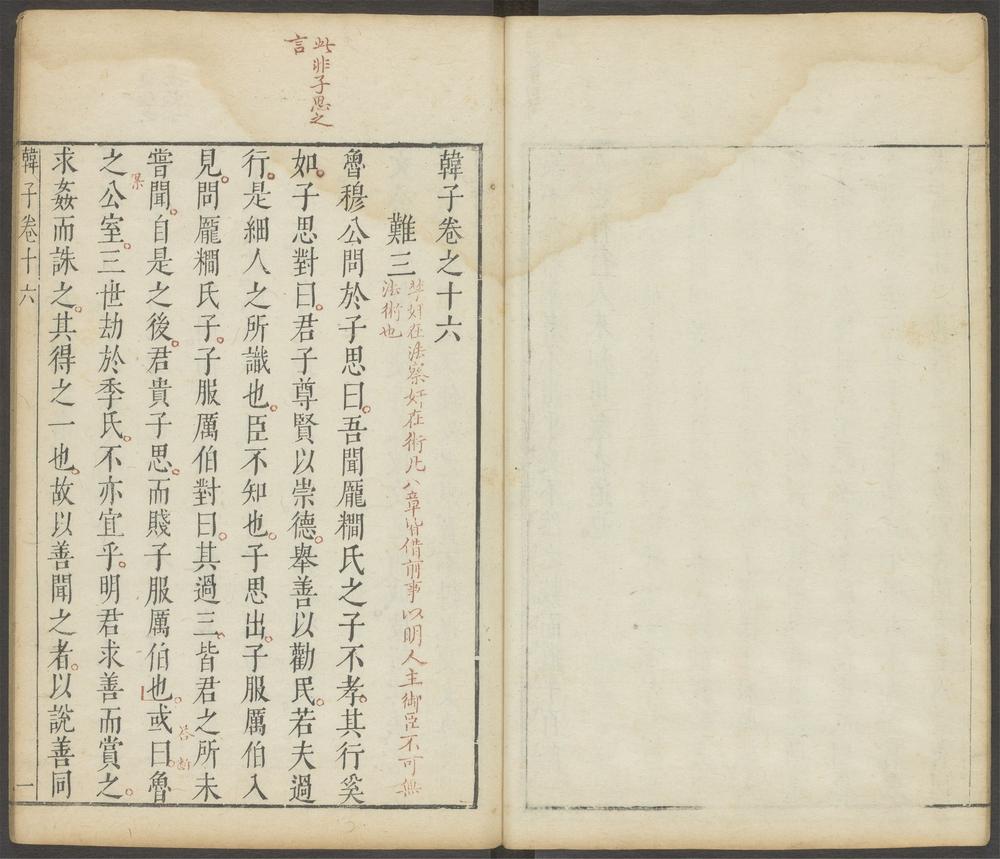 此非子思之
言
韓子卷之十六
難三
禁奸在法察奸在術此八章皆借前事以明人主御臣不可無
法術也
魯穆公問於子思曰吾聞龐𥹥氏之子不孝其行奚
如子思對曰君子尊賢以崇德舉善以勸民若夫過
行是細人之所識也臣不知也子思出子服厲伯入
見問龐𥹥氏子子服厲伯對曰其過三皆君之所未
嘗聞自是之後君貴子思而賤子服厲伯也或曰魯
答斷
之公室三世劫於季氏不亦宜乎明君求善而賞之
求姦而誅之其得之一也故以善聞之者以說善同
韓子卷十六
一